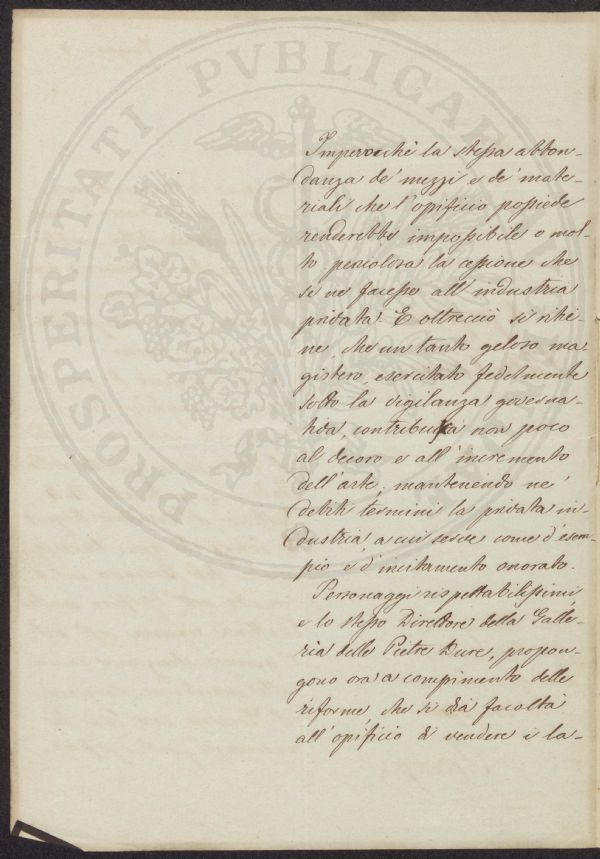 PROSPERITATI PVBLICAE
Imperocchè la stessa abbon-
danza de' mezzi e de' mate-
riali che l'opificio possiede
renderebbe impossibile o mol-
to pericolosa la cessione che
si ne facesse all'industria
privata. E oltreciò si ritie-
ne, che un tanto geloso ma-
gistero, esercitato fedelmente
sotto la vigilanza governa-
tiva, contribuisca non poco
al decoro e all'incremento
dell'arte, mantenendo ne'
debiti termini la privata in-
dustria, a cui serve come d'esem-
pio e d'incitamento onorato.
Personaggi rispettabilissimi
e lo stesso Direttore della Galle-
ria delle Pietre Dure, propon-
gono ora a compimento delle
riforme che si dia facoltà
all'opificio di vendere i la-